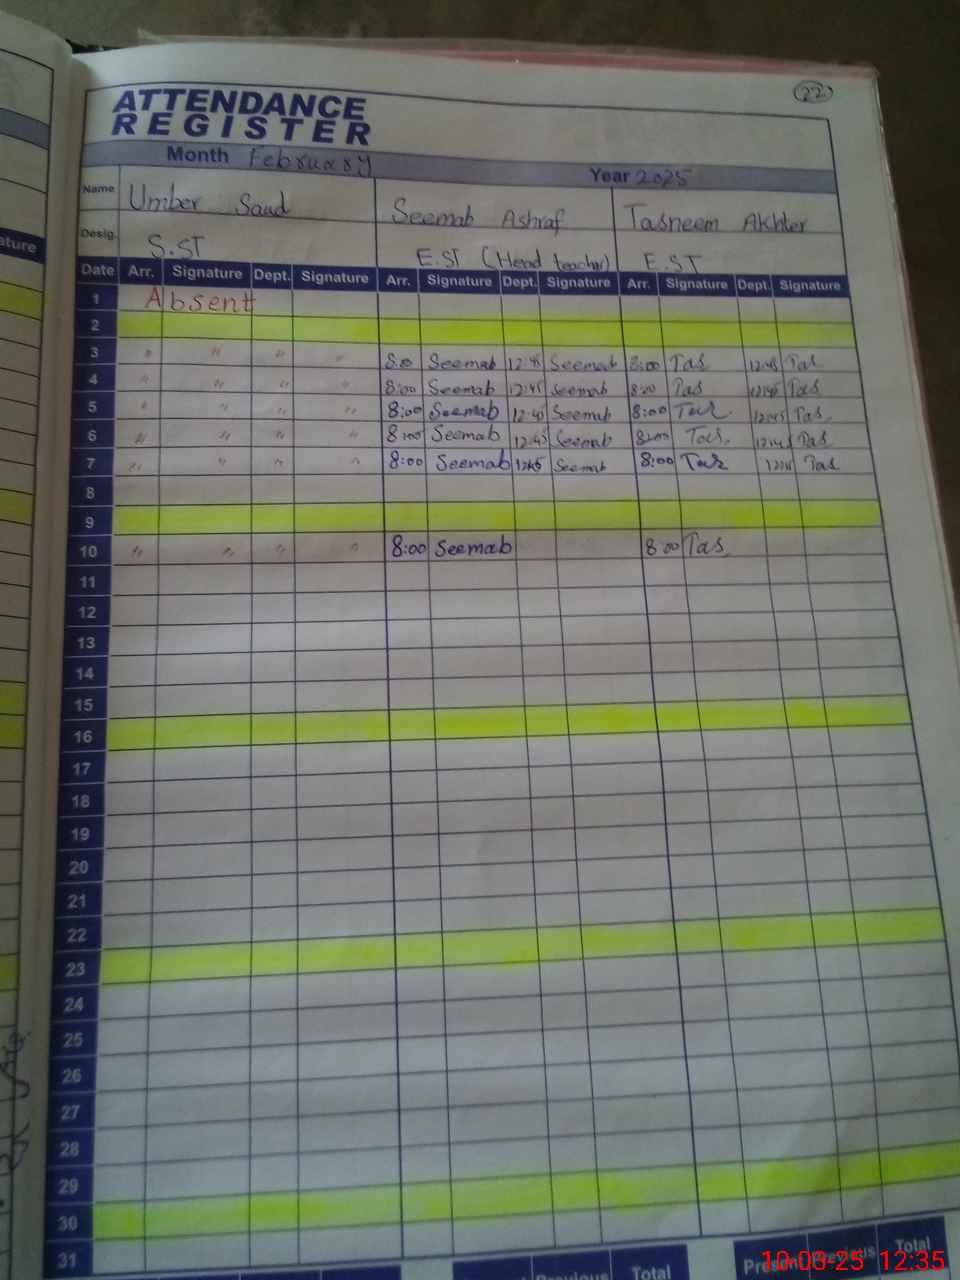 22
ATTENDANCE
REGISTER
Month February Year 2025
Name Umber Saud Seemab Ashraf Tasneem Akhter
Desig. S.ST E.ST (Head teacher) E.ST
ature
Date Arr. Signature Dept. Signature Arr. Signature Dept. Signature Arr. Signature Dept. Signature
1 Absent
2
3 " " " " 8:00 Seemab 12:45 Seemab 8:00 Tas 12:45 Tas
4 " " " " 8:00 Seemab 12:45 Seemab 8:00 Tas 12:45 Tas
5 " " " " 8:00 Seemab 12:45 Seemab 8:00 Tas 12:45 Tas
6 " " " " 8:00 Seemab 12:45 Seemab 8:00 Tas 12:45 Tas
7 " " " " 8:00 Seemab 12:45 Seemab 8:00 Tas Tas
8
9
10 " " " " 8:00 Seemab 8:00 Tas
11
12
13
14
15
16
17
18
19
20
21
22
23
24
25
26
27
28
29
30
31
Previous Total Present Previous Total
10-03-25 12:35